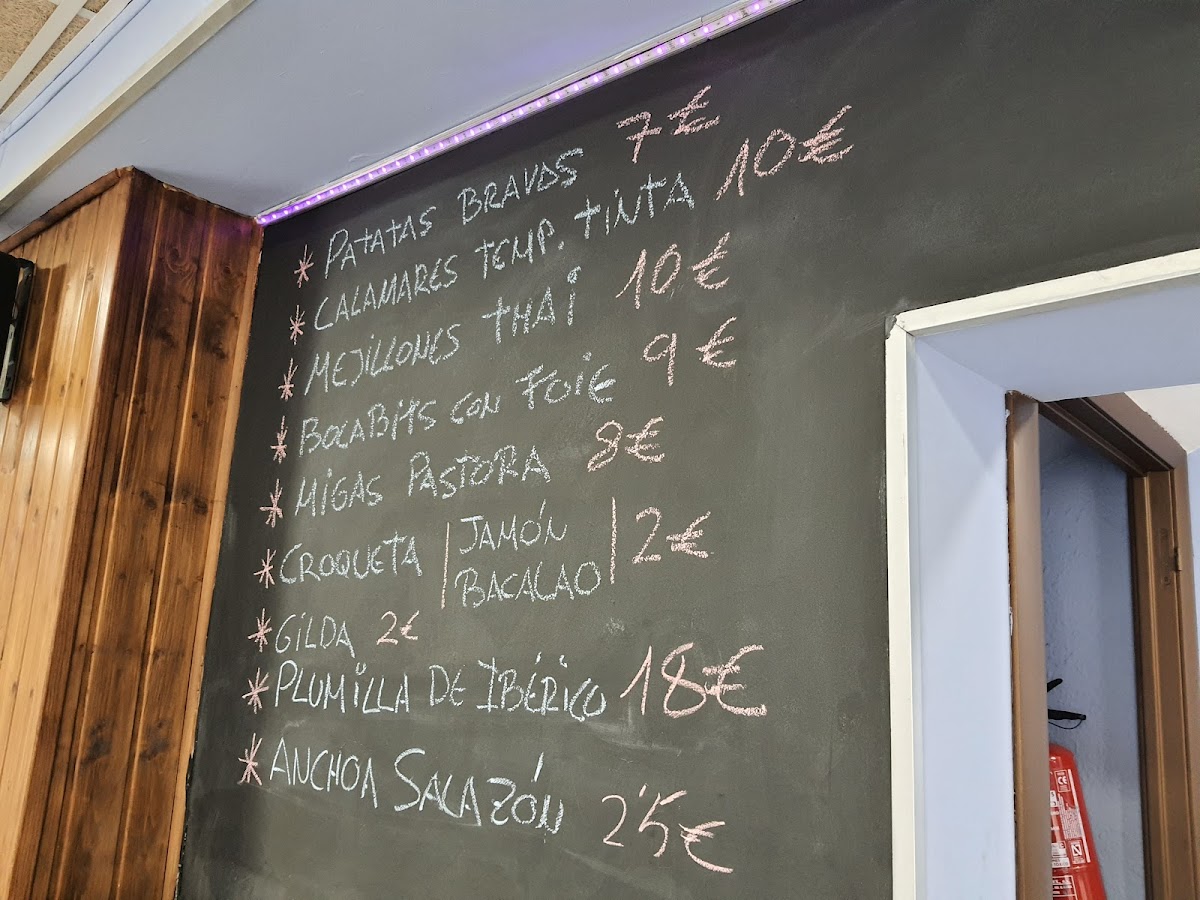 * PATATAS BRAVAS 7€
* CALAMARES TEMP. TINTA 10€
* MEJILLONES THAI 10€
* BOCABITS CON FOIE 9€
* MIGAS PASTORA 8€
* CROQUETA | JAMÓN | 2€
BACALAO
* GILDA 2€
* PLUMILLA DE IBÉRICO 18€
* ANCHOA SALAZÓN 2'5€